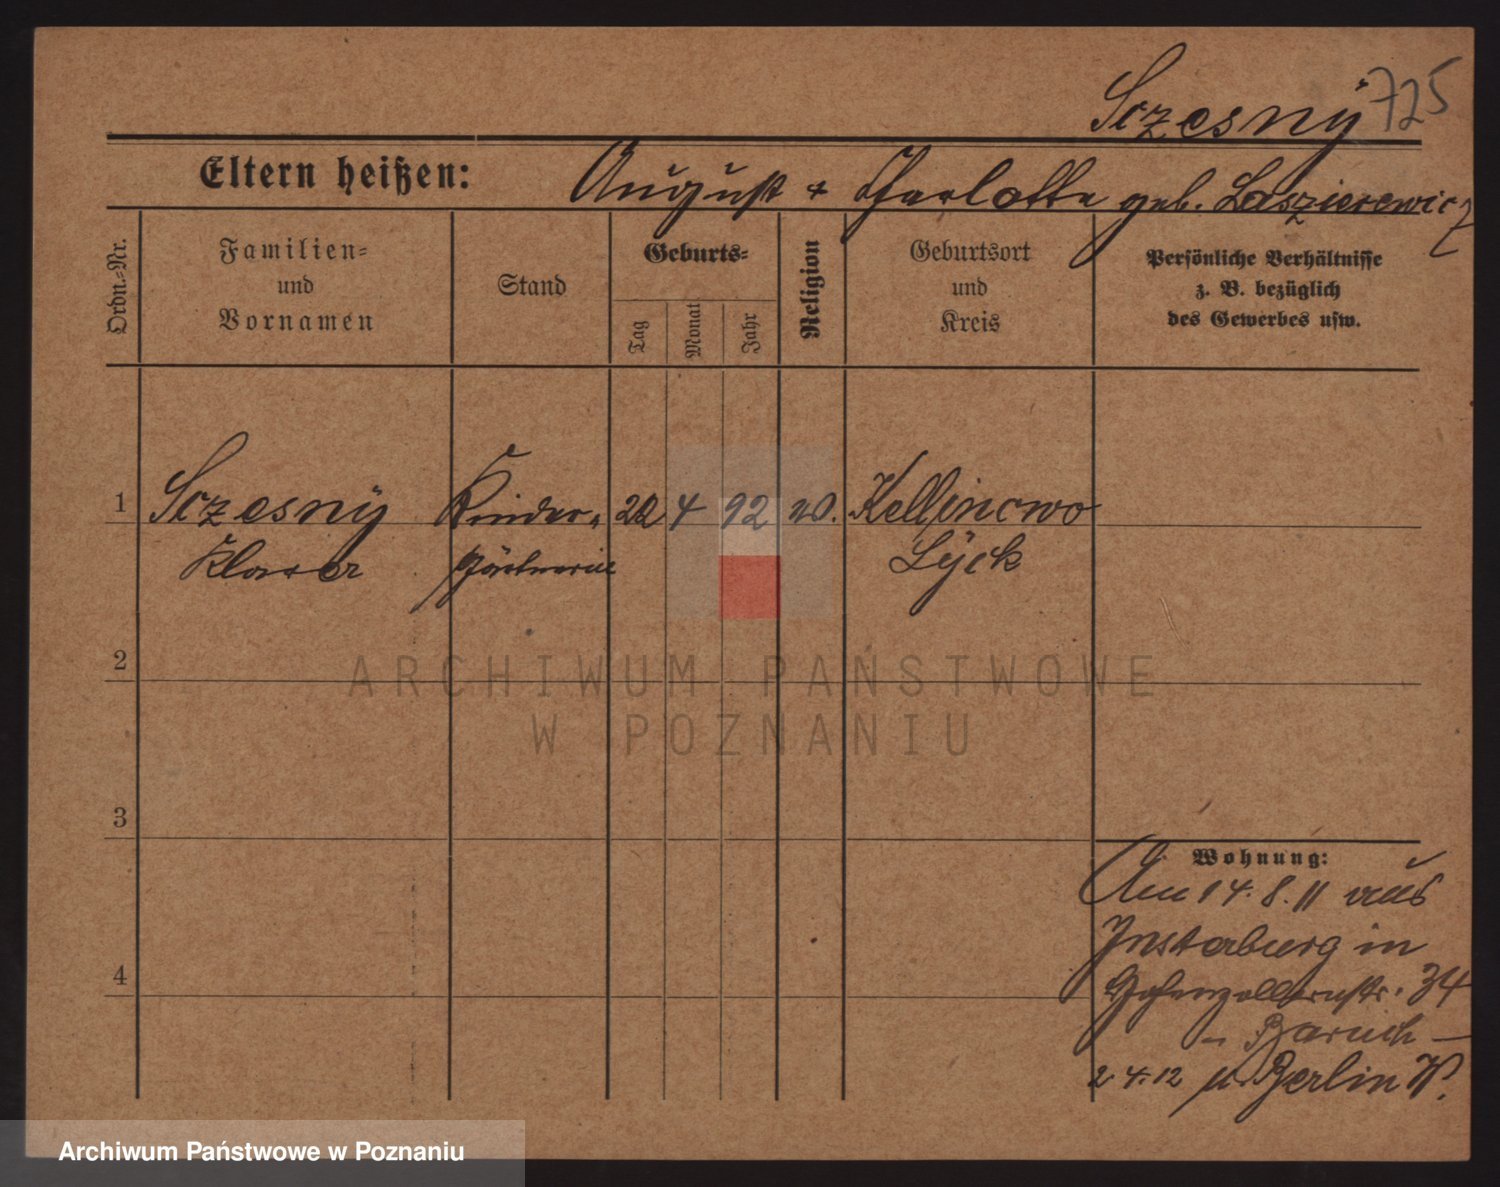 Sczesny 725
Eltern heißen: August & Charlotte geb. Laszierewicz
Ordn.-Nr.
Familien-
und
Vornamen
Stand
Geburts-
Tag
Monat
Jahr
Religion
Geburtsort
und
Kreis
Persönliche Verhältnisse
z. B. bezüglich
des Gewerbes usw.
1 Sczesny Kinder- 22 4 92 ev. Kellinowo
Klara gärtnerin Lyck
2
3
4
Wohnung:
Am 14.8.11 aus
Insterburg in
Hohenzollernstr. 34
- Baruch -
2.4.12 n. Berlin W.
ARCHIWUM PAŃSTWOWE
W POZNANIU
Archiwum Państwowe w Poznaniu